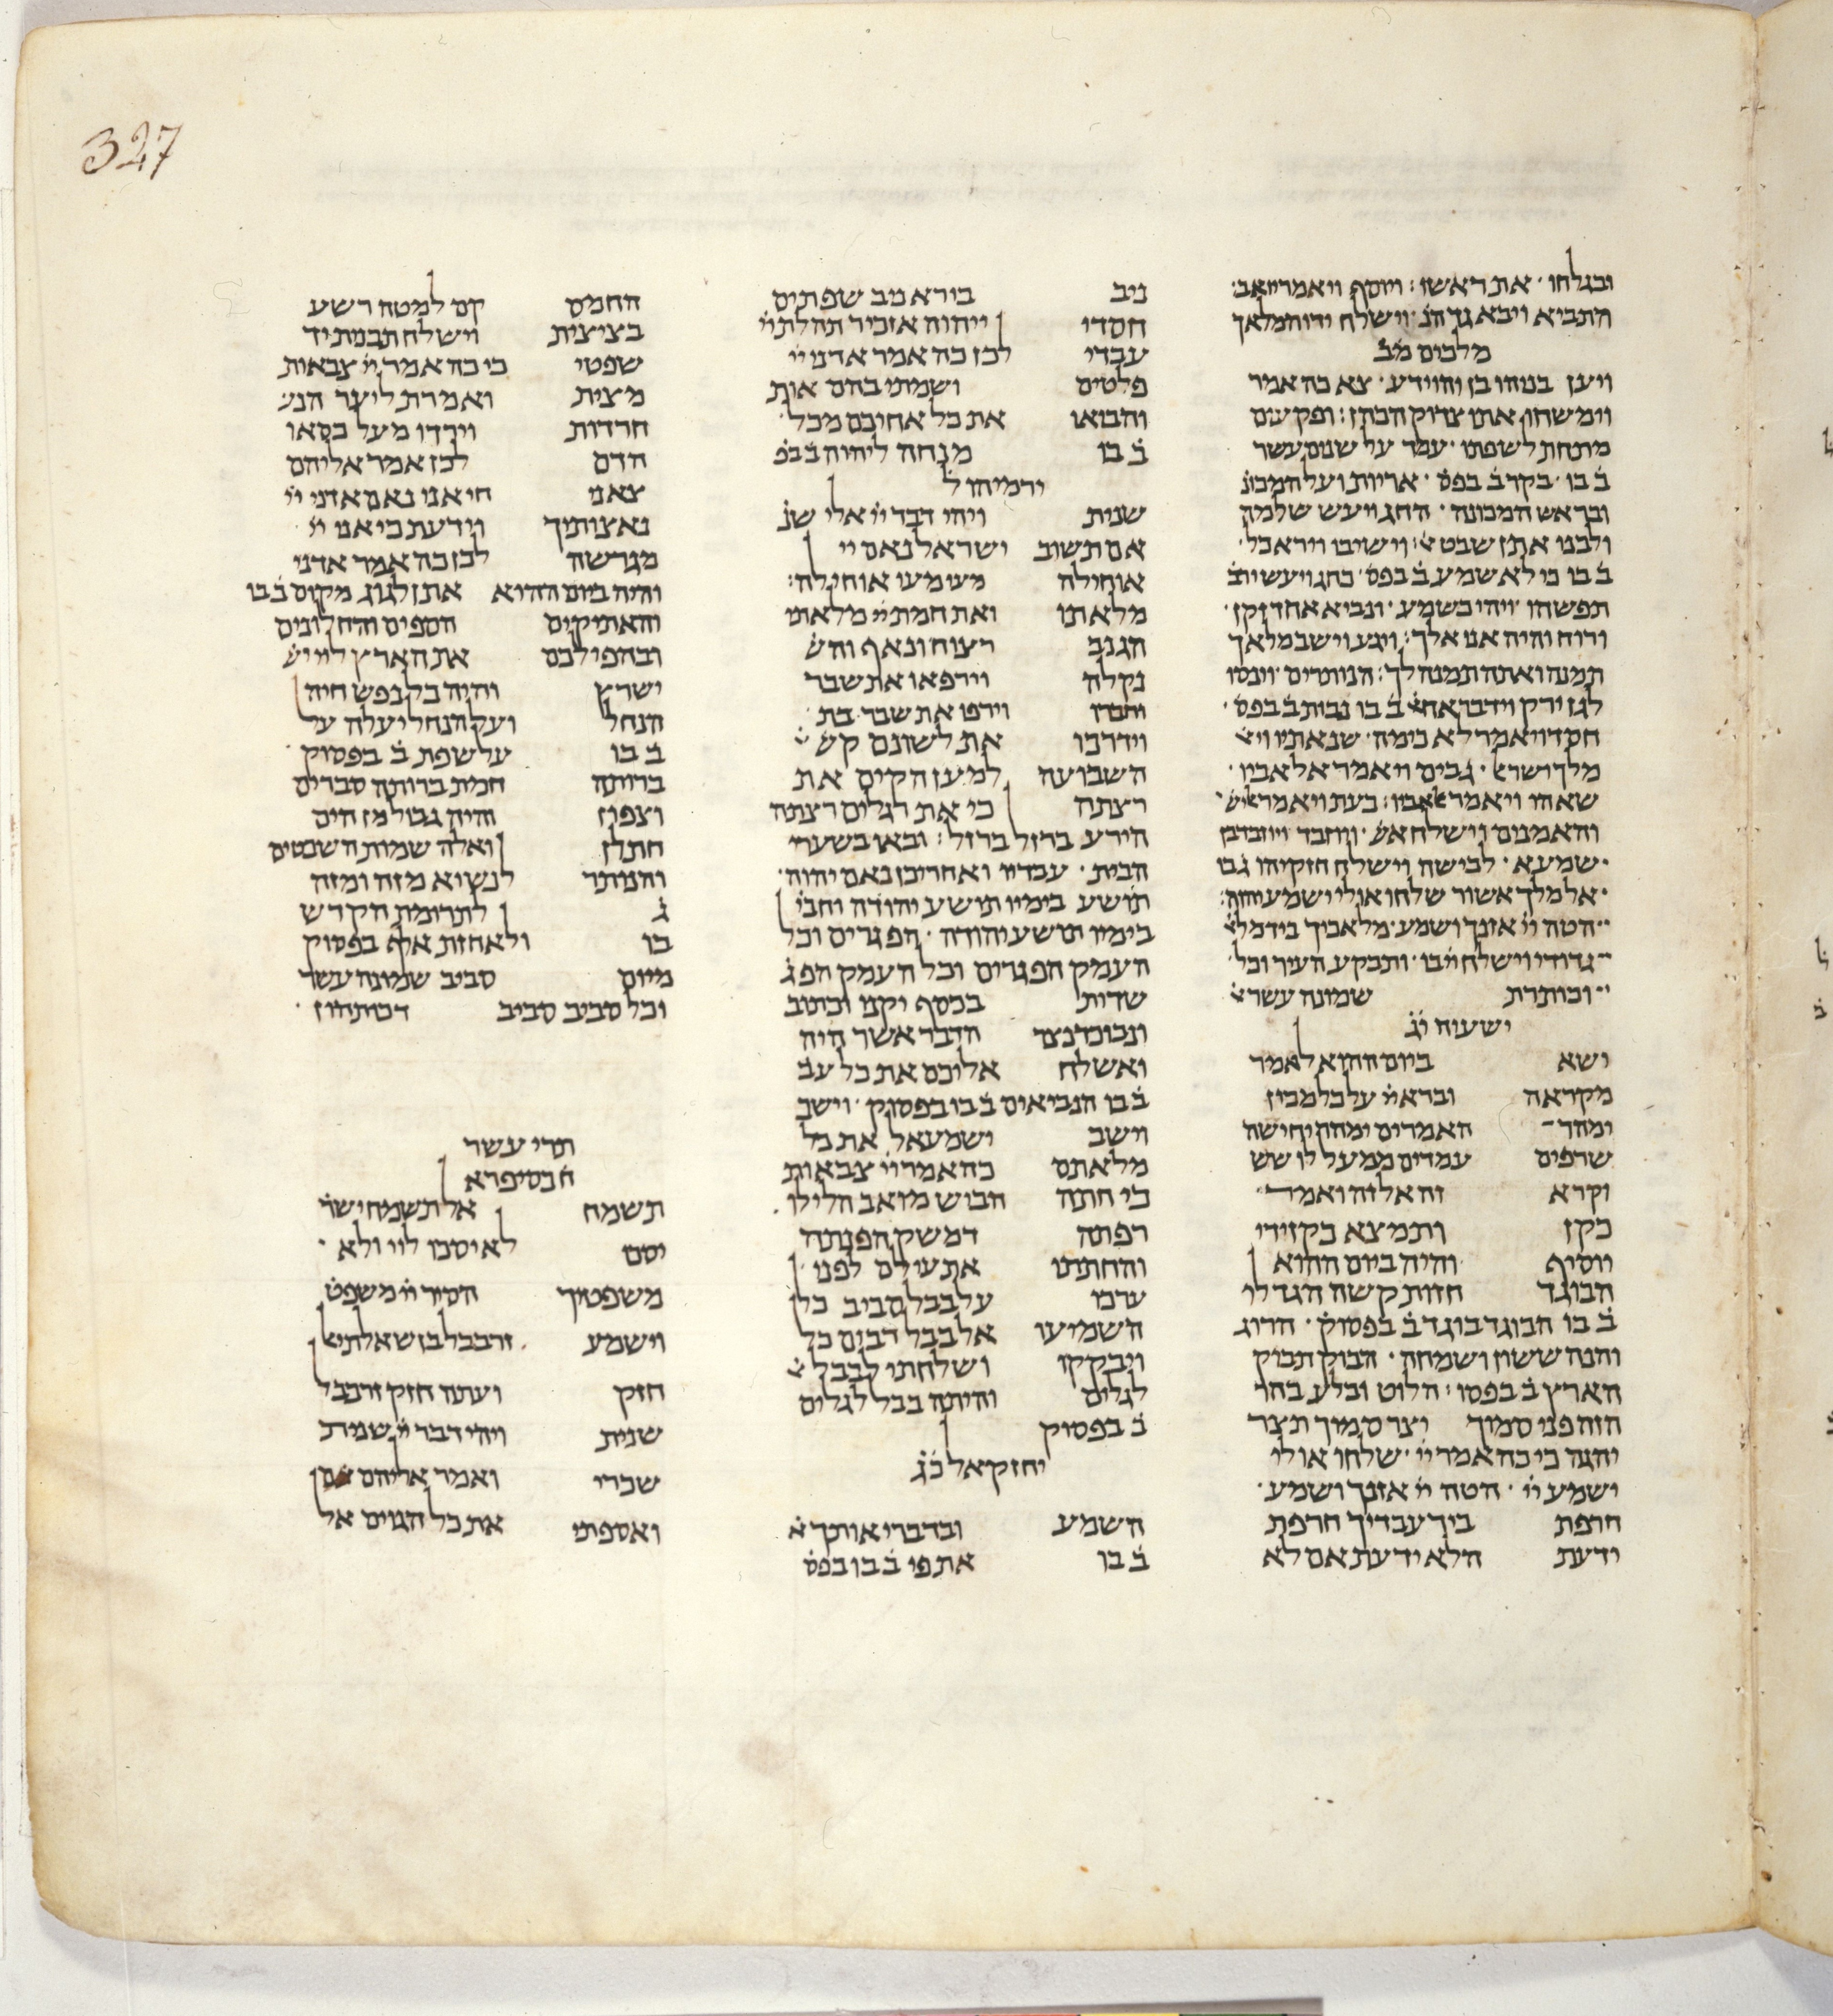 327
ובגלחו · את ראשו : ויוסף ויאמר יואב ·
התביא ויבא גד הנ · וישלח ידו המלאך
מלכים מב
ויען בניהו בן יהוידע · צא כה אמר
וימשחו אתו צדוק הכהן : ופקעים
מתחת לשפתו · עמד על שנים עשר
ב בו · בקר ב בפס · אריות ועל המכונ
ובראש המכונה · החג ויעש שלמה
ולבנו אתן שבט · וישיבו וירא כל ·
ב בו כי לא שמע ב בפס · בחג ויעש ירב
תפשהו · ויהי כשמע · ונביא אחד זקן ·
ורוח והיה אני אלך : ויגע וישב מלאך
תמנה ואתה תמנה לך : הנותרים · וינסו
לגן ירק וידבר אח ב בו נבות ב בפס ·
חסד ויאמר לא כימה · שנאתיו וי
מלך ישרא · גבים ויאמר אל אביו ·
שאהו ויאמר אביו : כעת ויאמר איש ·
והאמנים וישלח · ויזבד ויוזבד בן
שמעא · לכישה וישלח חזקיהו ג בו
אל מלך אשור שלחו אולי ישמע יהוה ·
הטה יי אזנך ושמע · מלאכיך ביד מל
גדודי וישלח יי בו · ותבקע העיר וכל ·
וכותרת שמונה עשר
ישעיה יג
ישא ביום ההוא לאמר
מקראה וברא יי על כל מכון
ימהר האמרים ימהר יחישה
שרפים עמדים ממעל לו שש
וקרא זה אל זה ואמר
כקן ותמצא כקן ידי
יוסיף והיה ביום ההוא
הבוגד חזות קשה הגד לי
ב בו הבוגד בוגד ב בפסוק · הרוג
והנה ששון ושמחה · הבוק תבוק
הארץ ב בפסו · הלוט ובלע בהר
הזה פני סמוך יצר סמוך תצר
יהגה כי כה אמר יי · שלחו אולי
ישמע יי · הטה יי אזנך ושמע ·
חרפת ביד עבדיך חרפת
ידעת הלא ידעת אם לא
ניב בורא נוב שפתים
חסדי יהוה אזכיר תהלת יי
עבדי לכן כה אמר אדני יי
פלטים ושמתי בהם אות
והביאו את כל אחיכם מכל ·
ב בו מנחה ליהוה ב בפ
ירמיהו ל
שנית ויהי דבר יי אלי שנ
אם תשוב ישראל נאם יי
אוחילה מעי מעי אוחילה :
מלאתי ואת חמת יי מלאתי
הגנב רצוח ונאף והש
נקלה וירפאו את שבר
וחברו וירפו את שבר בת ·
וידרכו את לשונם קש
השבועה למען הקים את
רצתה כי את רגלים רצתה
הירע ברזל ברזל : ובאו בשערי
הבית · עבדיו ואחריכן נאם יהוה ·
תושע בימיו תושע יהודה וחבי
בימיו תושע יהודה · הפגרים וכל
העמק הפגרים וכל העמק הפג
שדות בכסף יקנו וכתוב
ונבוכדנצר הדבר אשר היה
ואשלח אליכם את כל עב
ב בו הנביאים ב בו בפסוק · וישב
וישב ישמעאל את כל
מלאתם כה אמר יי צבאות
כי חתה הביש מואב הלילו ·
רפתה דמשק הפנתה
והחתתי את עולם לפני ·
ערכו על בבל סביב כל
השמיעו אל בבל רבים כל
ויבקקו ושלחתי לבבל
לגלים והיתה בבל לגלים
ב בפסוק
יחזקאל כג
השמע ובדברי אותך א
ב בו את פי ב בו בפס
החמס קם למטה רשע
בציצית וישלח תבנית יד
שפטי כי כה אמר יי צבאות
מצית ואמרת ליער הנג
חרדות וירדו מעל כסאו
הדם לכן אמר אליהם
צאני חי אני נאם אדני יי
נאצותיך וידעת כי אני יי ·
מגרשה לכן כה אמר אדני
והיה ביום ההוא אתן לגוג מקום ב בו
והאתיקים הספים והחלונים
ובהפילכם את הארץ ליי יש
ישרץ והיה כל נפש חיה
הנחל ועל הנחל יעלה על
ב בו על שפת ב בפסוק ·
ברותה חמת ברותה סברים
וצפון והיה גבול מן הים
חתלן ואלה שמות השבטים
והנותר לנשיא מזה ומזה
ג לתרומת הקדש
בו ולאחזת אלף בפסוק
מיום סביב שמונה עשר
וכל סביב סביב דפתחון ·
תרי עשר
ח בסיפרא
תשמח אל תשמח ישר
יסם לא יסכו ליי ולא ·
משפטיך הסיר יי משפט
וישמע זרבבל בן שאלתי
חזק ועתה חזק זרבבל
שנית ויהי דבר יי שנית
שכרי ואמר אליהם אם
ואספתי את כל הגוים אל